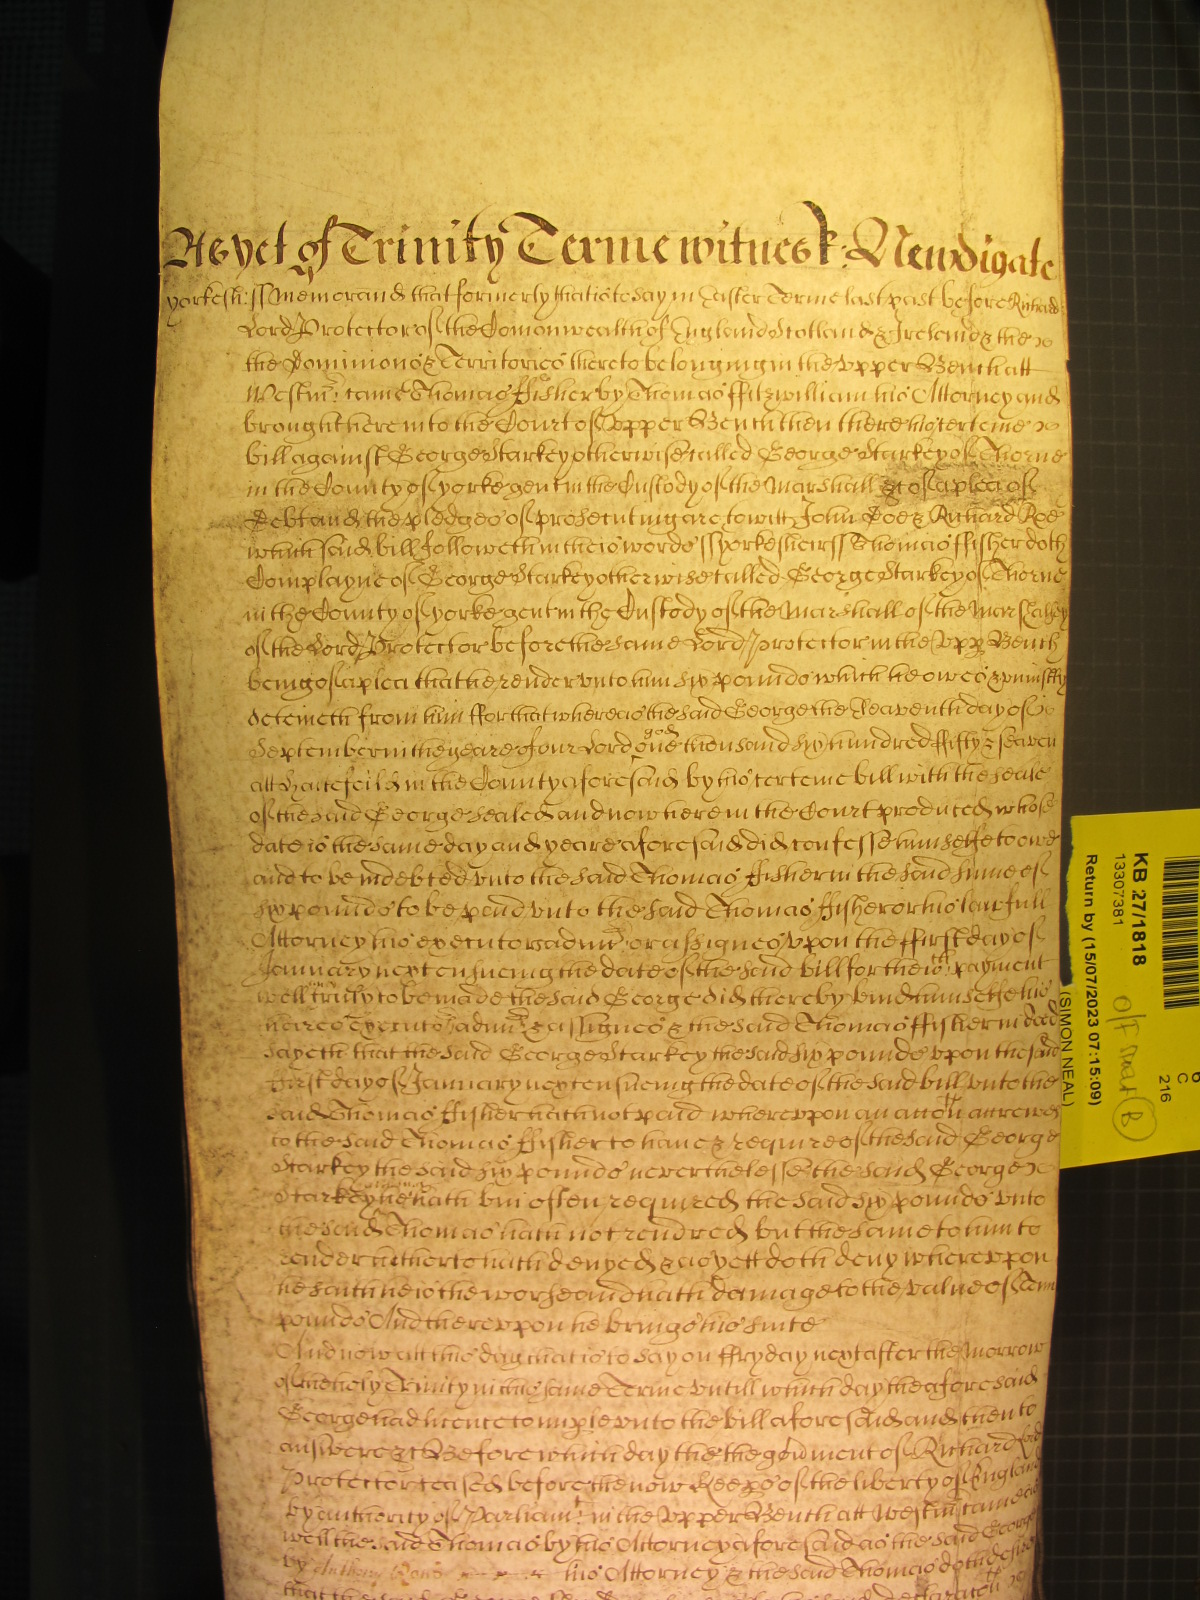 As yet of Trinity Terme witnes R: Newdigate
Yorkesh: ss Memorand that formerly that is to say in Easter Terme last past before Richard
Lord Protector of the Comonwealth of England Scotland & Ireland & the
the Dominions & Territories thereto belonging in the Upper Bench att
Westmr: came Thomas ffisher by Thomas ffitzwilliam his Attorney and
brought here into the Court of Upper Bench then there his certeine
bill against George Starkey otherwise called George Starkey of Thorne
in the County of yorke gent in the Custody of the Marshall &c of a plea of
Debt and the pledges of prosecuting are to witt John Doe & Richard Roe
which said bill followeth in theis words ss yorkesheir ss Thomas ffisher doth
Complayne of George Starkey otherwise called George Starkey of Thorne
in the County of yorke gent in the Custody of the Marshall of the Marshalsey
of the Lord Protector before the same Lord Protector in the Upp Bench
being of a plea that he render vnto him six pounds which he owes & uniustly
deteineth from him ffor that whereas the said George the seaventh day of
September in the yeare of our Lord god one thousand six hundred ffifty & seaven
att in the County aforesaid by his certeine bill with the seale
of the said George sealed and now here in the Court produced whose
date is the same day and yeare aforesaid did confesse himselfe to owe
and to be indebted vnto the said Thomas ffisher in the said sume of
six pounds to be paid vnto the said Thomas ffisher or his lawfull
Attorney his executors admrs or assignes vpon the ffirst day of
January next ensueing the date of the said bill for the wch payment
well & truly to be made the said George did thereby bind himselfe his
heires executors admrs & assignes & the said Thomas ffisher in deed
sayeth that the said George Starkey the said six pounds vpon the said
first day of January next ensueing the date of the said bill vnto the
said Thomas ffisher hath not paid wherevpon an accon accrewed
to the said Thomas ffisher to have & require of the said George
Starkey the said six pounds neverthelesse the said George
Starkey hath bin often required the said six pounds vnto
the said Thomas hath not rendred but the same to him to
render hitherto hath denyed & as yett doth deny wherevpon
he saith he is the worse and hath damage to the value of Tenn
pounds And therevpon he brings his suite
And now att this day that is to say on ffryday next after the Morrow
of the holy Trinity in this same Terme vntill which day the aforesaid
George had licence to imple vnto the bill aforesaid and then to
answere &c Before which day the the goument of Richard Lord
Protector ceased before the now Keeps of the liberty of England
by authority of Parliamt in the Upper Bench att Westmr came as
well the said Thomas by his Attorney aforesaid as the said George
by Anthony his Attorney & the said Thomas doth desire
KB 27/1818
13307381
Return by (15/07/2023 07:15:09)
(SIMON NEAL)
C
216